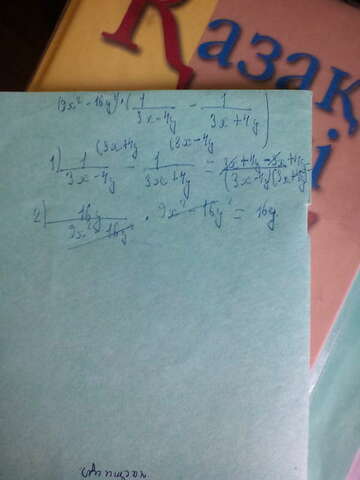 Қазақ
(9x² - 16y²) · (1/(3x-4y) - 1/(3x+4y))
1) 1/(3x-4y) (3x+4y - 1/(3x+4y) (3x-4y = (3x+4y-3x+4y)/((3x-4y)(3x+4y)
2) 16y/(9x²-16y²) · 9x²-16y² = 16y